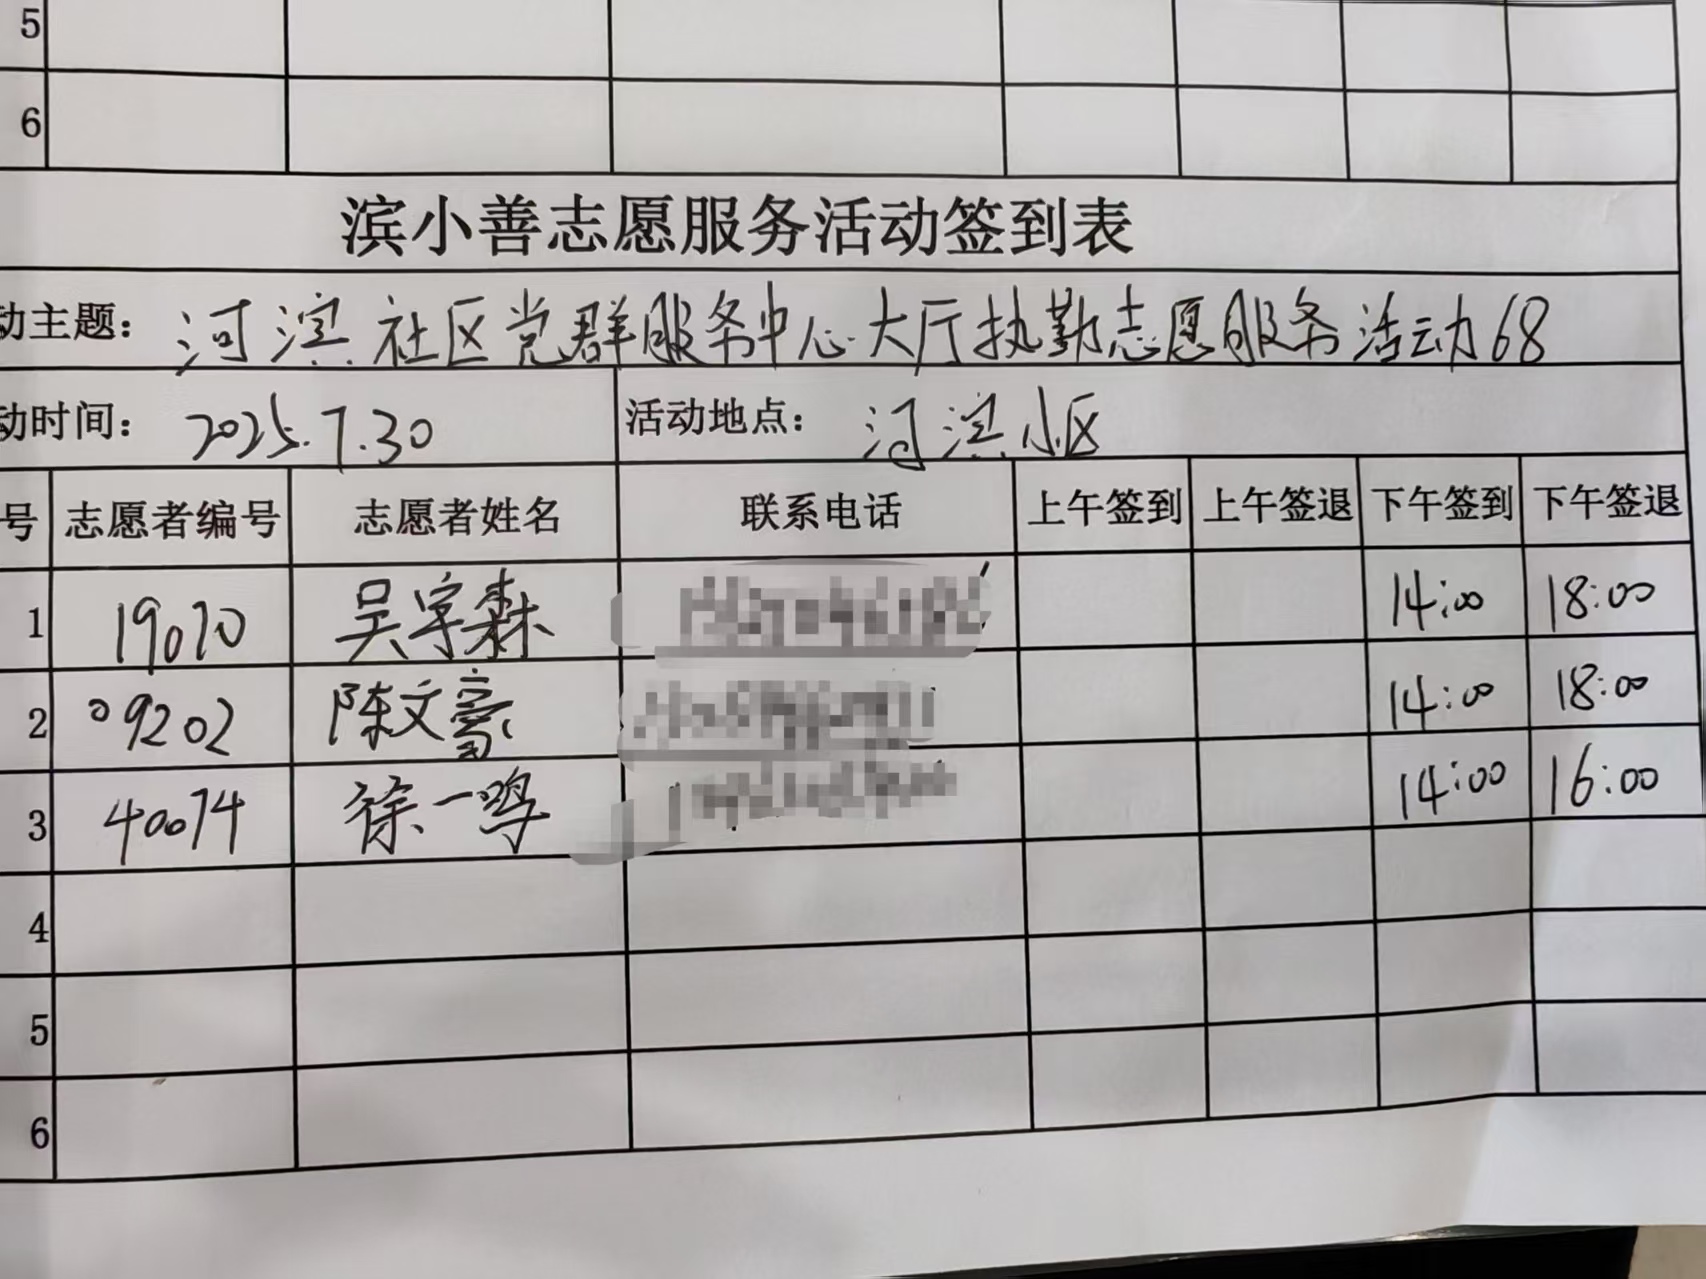 5
6
滨小善志愿服务活动签到表
动主题: 河滨社区党群服务中心大厅执勤志愿服务活动68
动时间: 2025.7.30 活动地点: 河滨小区
号 志愿者编号 志愿者姓名 联系电话 上午签到 上午签退 下午签到 下午签退
1 19070 吴宇森 14:00 18:00
2 09202 陈文豪 14:00 18:00
3 40074 徐一鸣 14:00 16:00
4
5
6